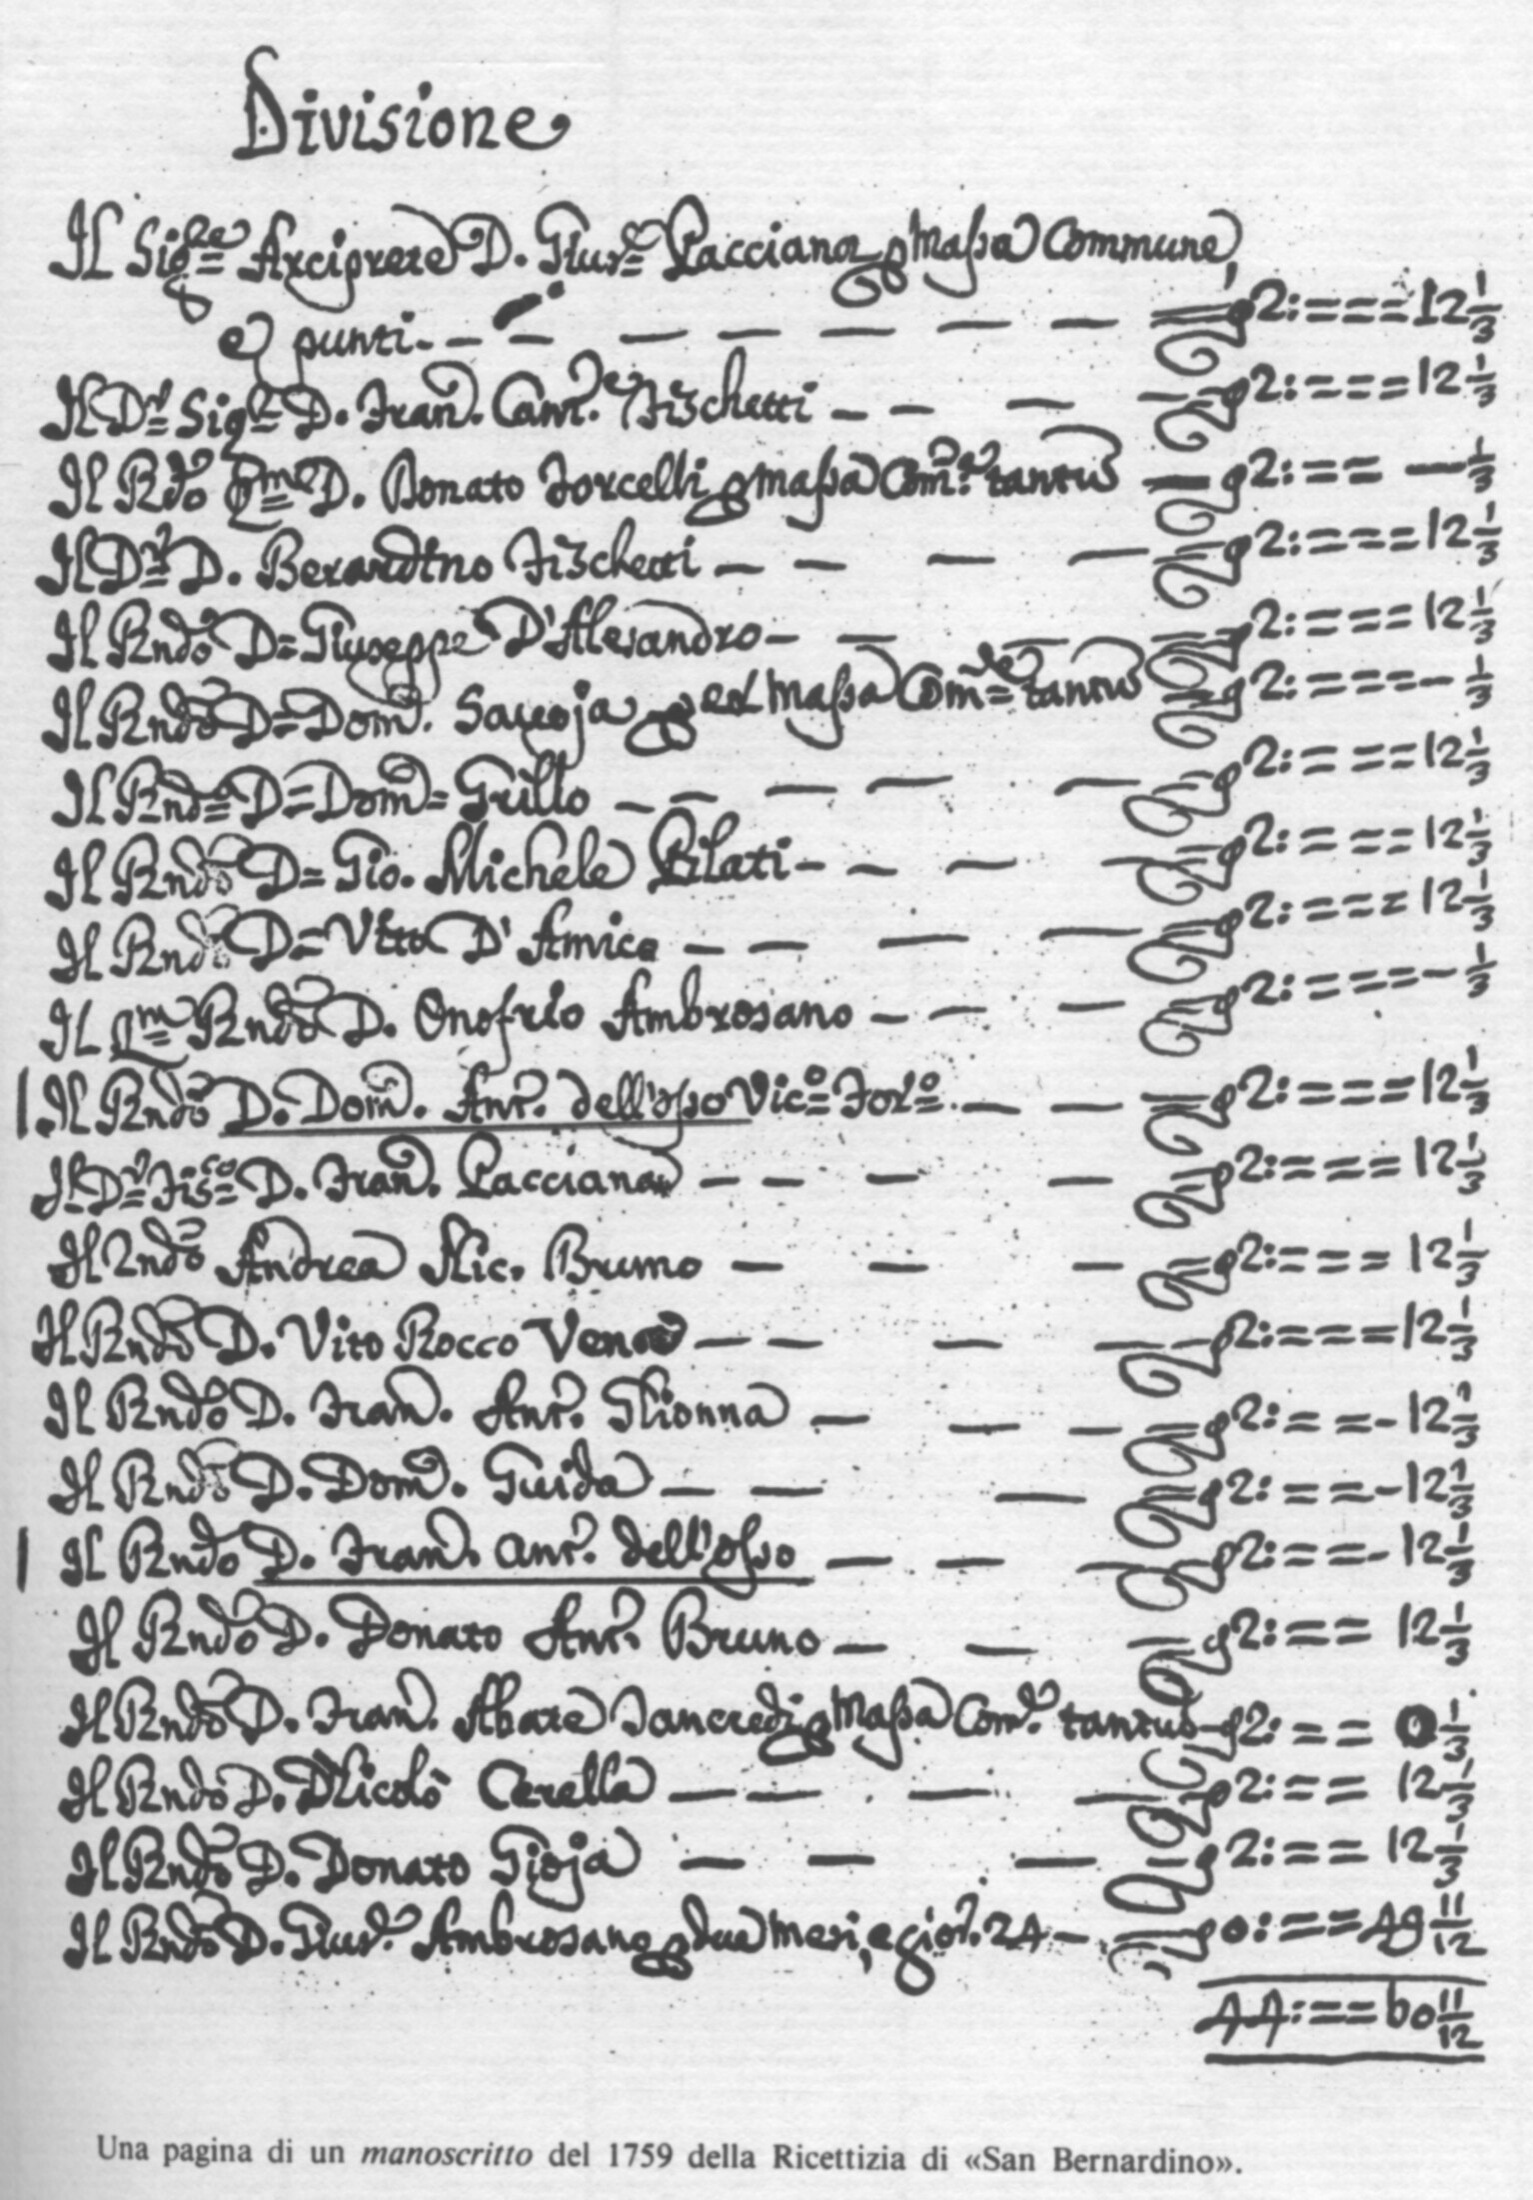 Divisione
Il Sig.re Arciprete D. Gius.e Pacciana p Massa Commune,
e punti - - - - - - - - 2: = = = 12 1/3
Il D.r Sig.r D. Fran. Cant.e Fischetti - - - - 2: = = = 12 1/3
Il Rdo D. Donato Torcelli p massa Com.e tantũ - 2: = = - 1/3
Il D.r D. Berardino Fischetti - - - - 2: = = = 12 1/3
Il Rndo D= Giuseppe D'Alesandro - - - - 2: = = = 12 1/3
Il Rndo D= Dom. Savoja p et massa Com=e tantũ - 2: = = = - 1/3
Il Rndo D= Dom= Grillo - - - - - 2: = = = 12 1/3
Il Rndo D= Gio. Michele Pilati - - - - 2: = = = 12 1/3
Il Rndo D= Vito D'Amico - - - - 2: = = = 12 1/3
Il qm Rndo D. Onofrio Ambrosano - - - 2: = = = - 1/3
Il Rndo D. Dom. Ant. dell'osso Vic.o For.o - - - 2: = = = 12 1/3
Il D.r Fis.co D. Fran. Pacciana - - - - 2: = = = 12 1/3
Il Rndo Andrea Nic. Bruno - - - 2: = = = 12 1/3
Il Rndo D. Vito Rocco - - - - 2: = = = 12 1/3
Il Rndo D. Fran. Ant. Glionna - - - 2: = = - 12 1/3
Il Rndo D. Dom. Guida - - - 2: = = - 12 1/3
Il Rndo D. Fran. Ant. dell'osso - - - 2: = = - 12 1/3
Il Rndo D. Donato Ant. Bruno - - - 2: = = 12 1/3
Il Rndo D. Fran. Abate Tancredi p Massa Com.e tantus - 2: = = 0 1/3
Il Rndo D. Nicolò Cerella - - - - 2: = = 12 1/3
Il Rndo D. Donato Gioja - - - - 2: = = 12 1/3
Il Rndo D. Gius.e Ambrosano p due mesi, e gior. 24 - - 0: = = 49 11/12
44: = = 60 11/12
Una pagina di un manoscritto del 1759 della Ricettizia di «San Bernardino».